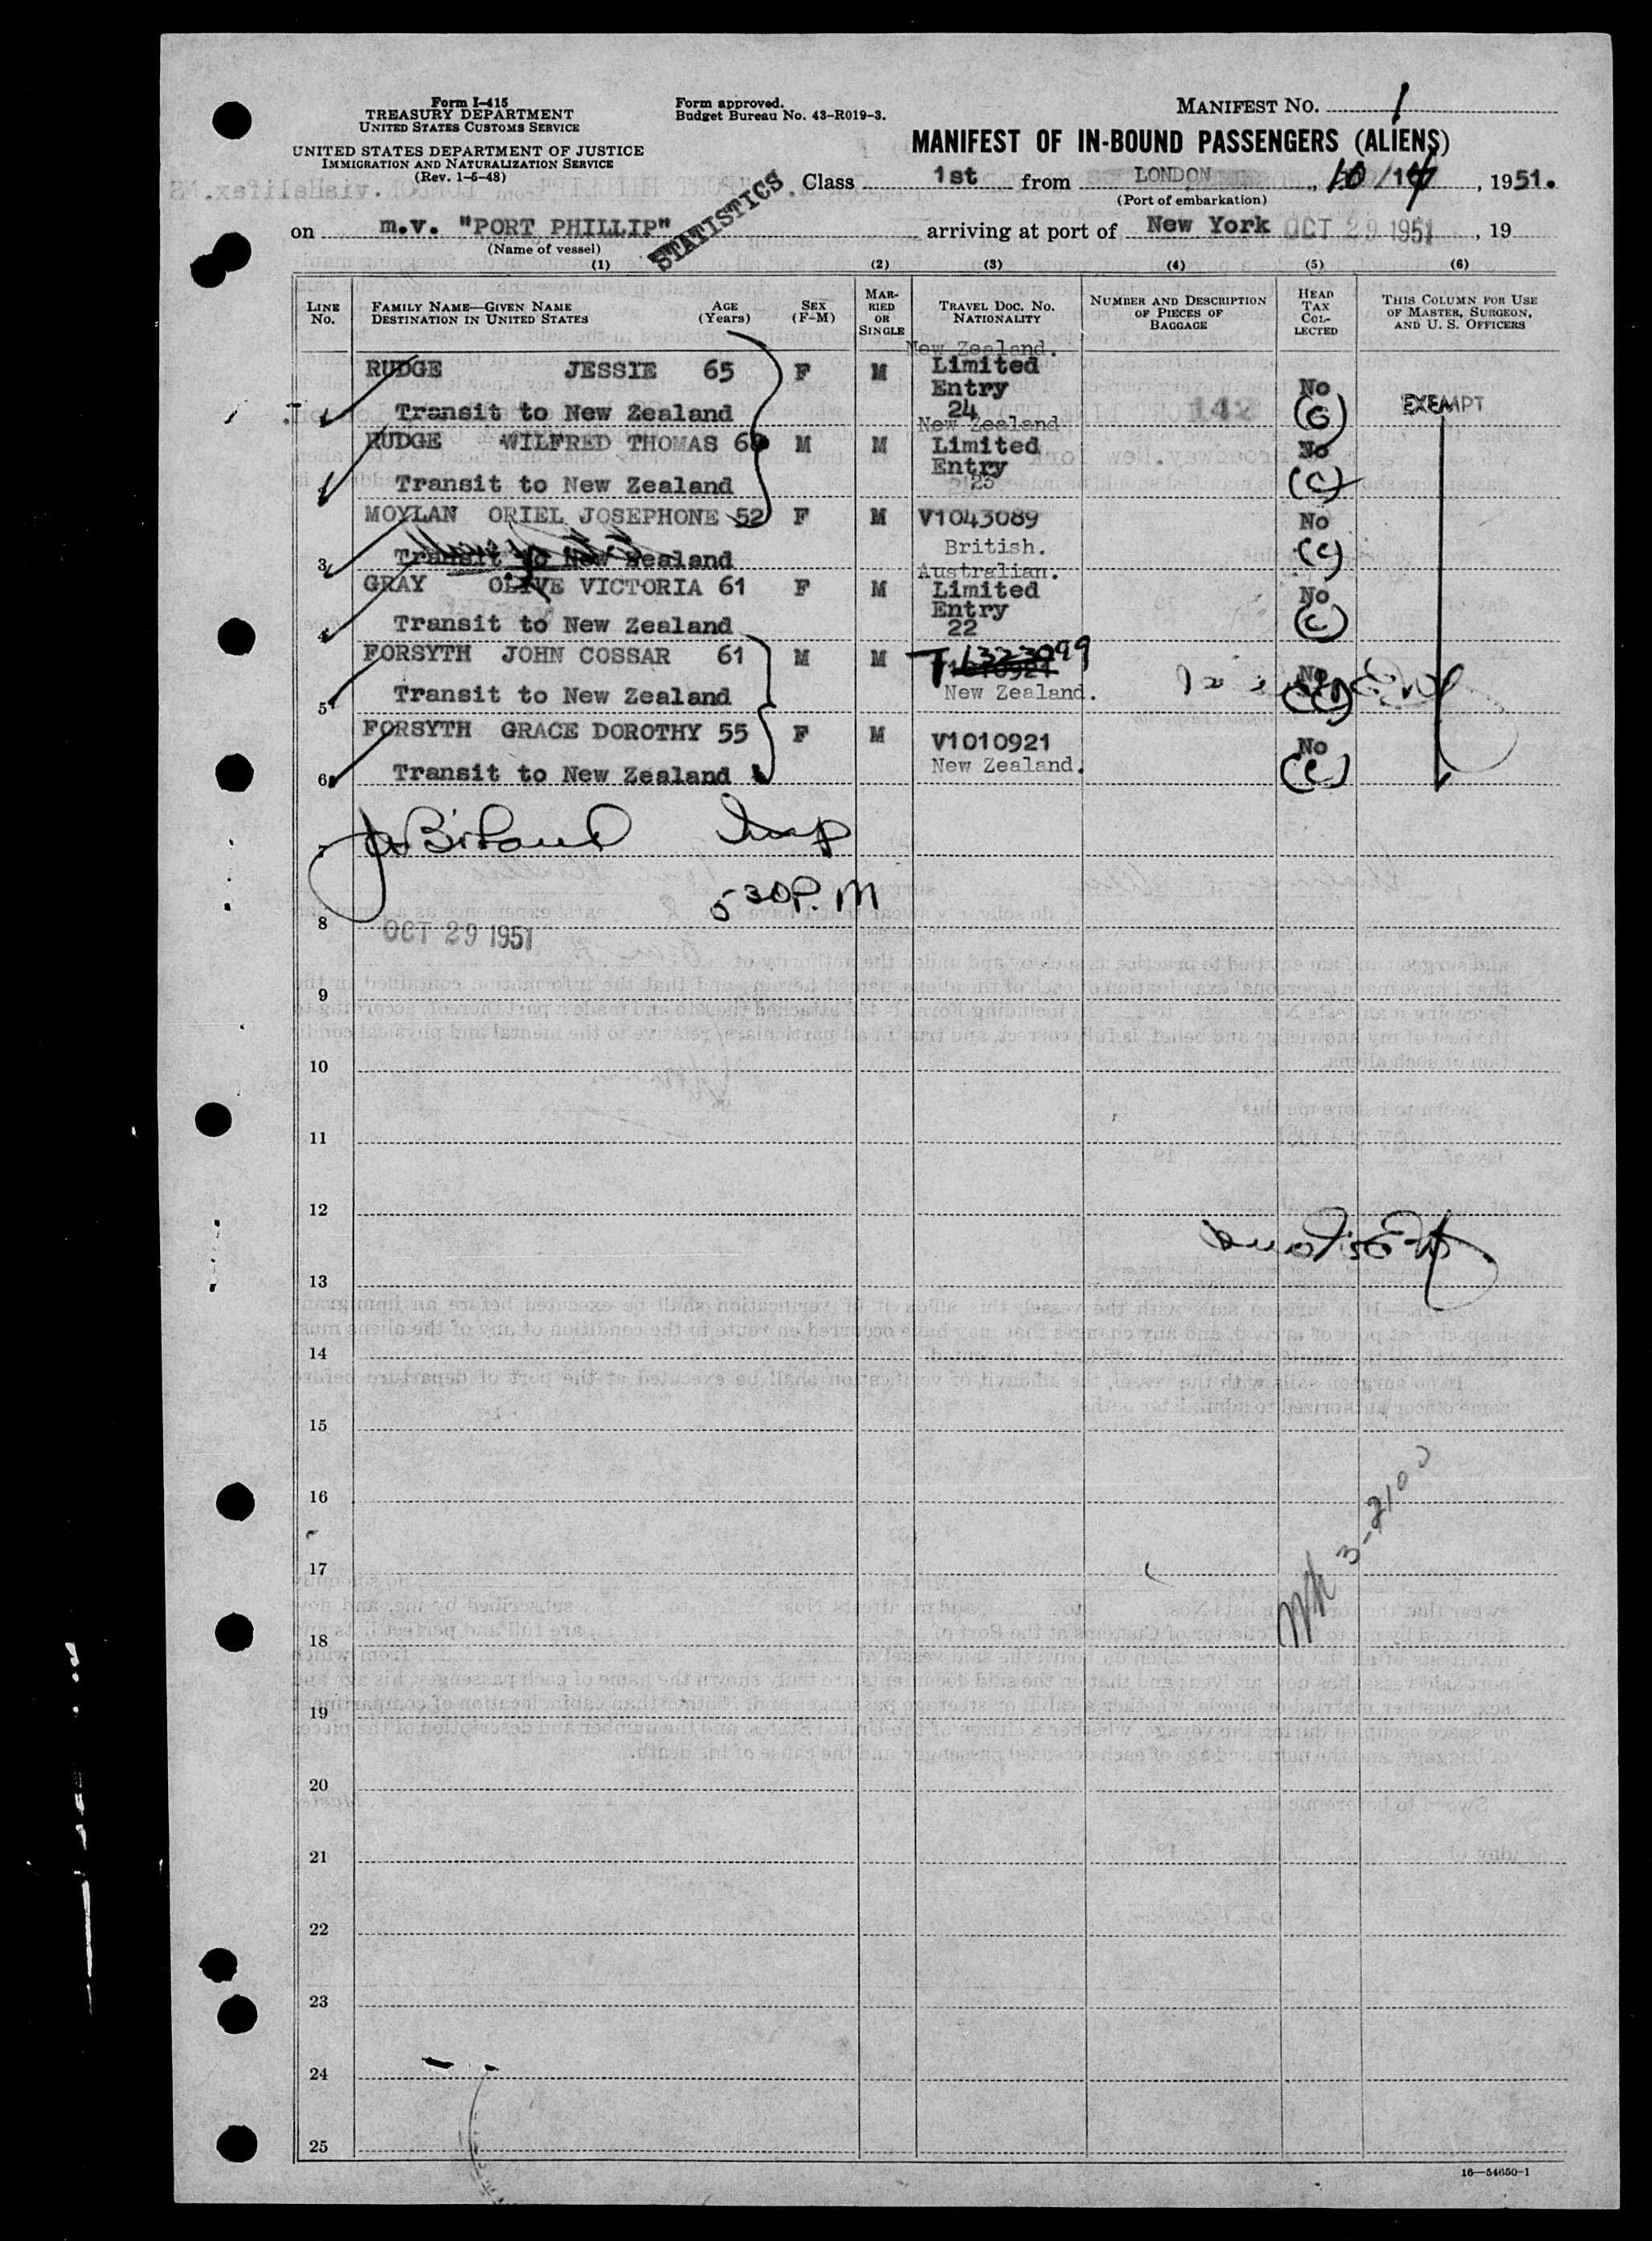 Form I-415
TREASURY DEPARTMENT
UNITED STATES CUSTOMS SERVICE
UNITED STATES DEPARTMENT OF JUSTICE
IMMIGRATION AND NATURALIZATION SERVICE
(Rev. 1-5-48)
Form approved.
Budget Bureau No. 43-R019-3.
MANIFEST NO. 1
MANIFEST OF IN-BOUND PASSENGERS (ALIENS)
Class 1st from LONDON, 10/14, 1951.
(Port of embarkation)
on m.v. "PORT PHILLIP" arriving at port of New York OCT 29 1951, 19
(Name of vessel)
STATISTICS
(1) (2) (3) (4) (5) (6)
LINE NO. FAMILY NAME—GIVEN NAME DESTINATION IN UNITED STATES AGE (Years) SEX (F-M) MARRIED OR SINGLE TRAVEL DOC. NO. NATIONALITY NUMBER AND DESCRIPTION OF PIECES OF BAGGAGE HEAD TAX COLLECTED THIS COLUMN FOR USE OF MASTER, SURGEON, AND U. S. OFFICERS
New Zealand.
RUDGE JESSIE 65 F M Limited
Entry No
Transit to New Zealand 24 142 EXEMPT
New Zealand
RUDGE WILFRED THOMAS M M Limited No
Entry
2 Transit to New Zealand 23 (C)
MOYLAN ORIEL JOSEPHONE 52 F M V1043089 No
British. (C)
3 Transit to New Zealand
Australian.
GRAY OLIVE VICTORIA 61 F M Limited No
Entry
4 Transit to New Zealand 22 (C)
FORSYTH JOHN COSSAR 61 M M T1323099 No
5 Transit to New Zealand New Zealand.
FORSYTH GRACE DOROTHY 55 F M V1010921 No
6 Transit to New Zealand New Zealand. (C)
7 Insp
5 30 P. M
8 OCT 29 1951
9
10
11
12
13
14
15
16
17
18
19
20
21
22
23
24
25
16—54650-1